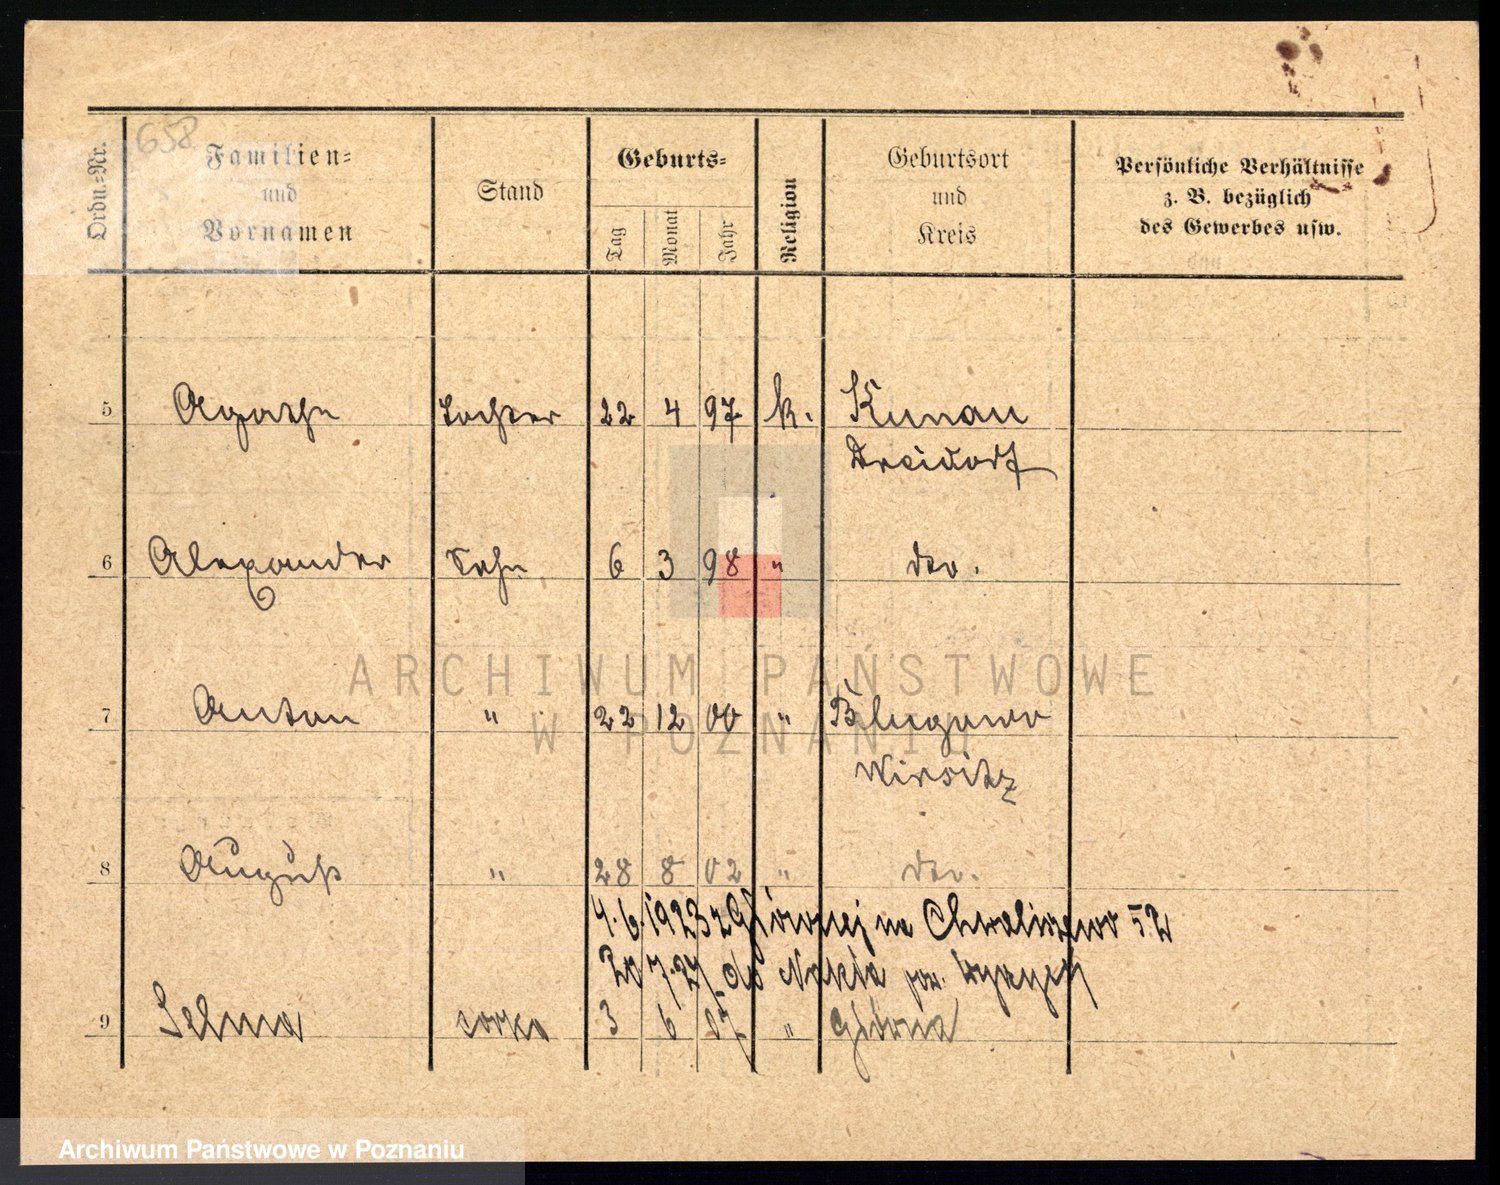 658
Ordn.=Nr.
Familien=
und
Vornamen
Stand
Geburts=
Tag
Monat
Jahr
Religion
Geburtsort
und
Kreis
Persönliche Verhältnisse
z. B. bezüglich
des Gewerbes usw.
5 Agathe Tochter 22 4 97 k. Kunau
Dreidorf
6 Alexander Sohn 6 3 98 " do.
ARCHIWUM PAŃSTWOWE
W POZNANIU
7 Anton " 22 12 00 " Blugowo
Wirsitz
8 August " 28 8 02 " do.
4.6.1923 z Głównej na Chwaliszewo 52
20 7.27 do Nakla pow. Wyrzysk
9 Selma corka 3 6 07 " Główna
Archiwum Państwowe w Poznaniu